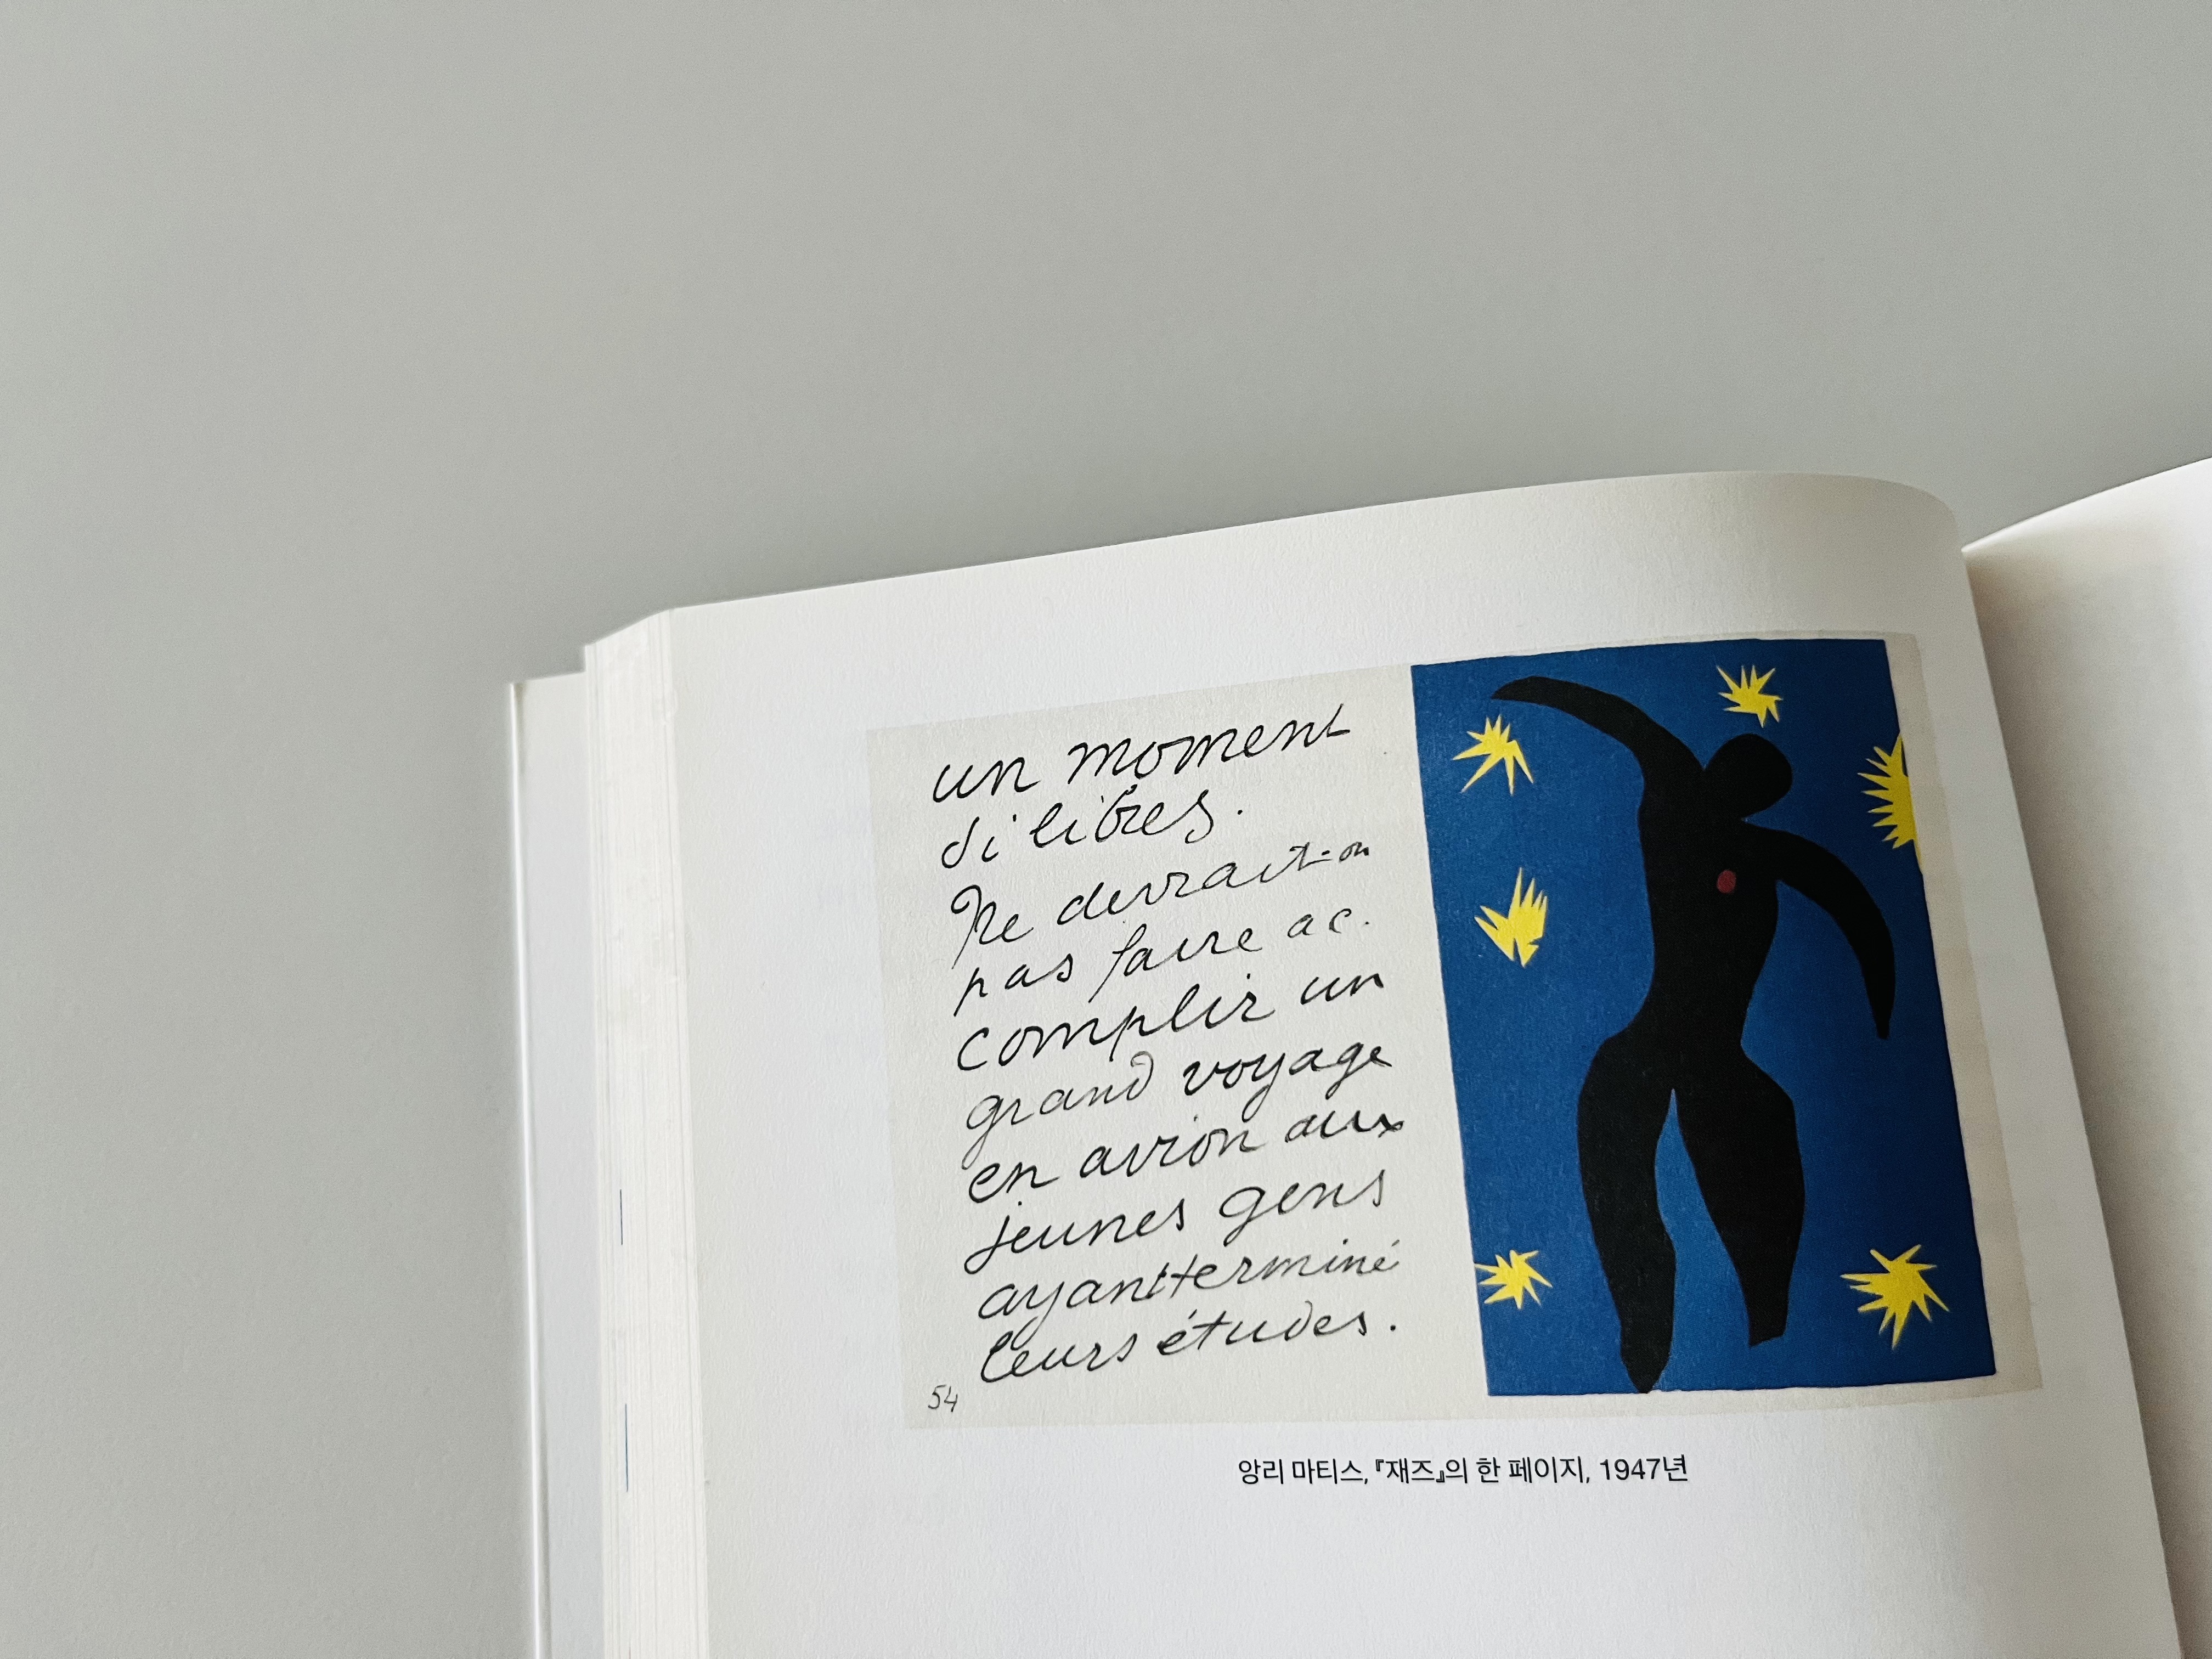 un moment
si libres.
Ne devrait-on
pas faire ac-
complir un
grand voyage
en avion aux
jeunes gens
ayant terminé
leurs études.
54
앙리 마티스, 『재즈』의 한 페이지, 1947년